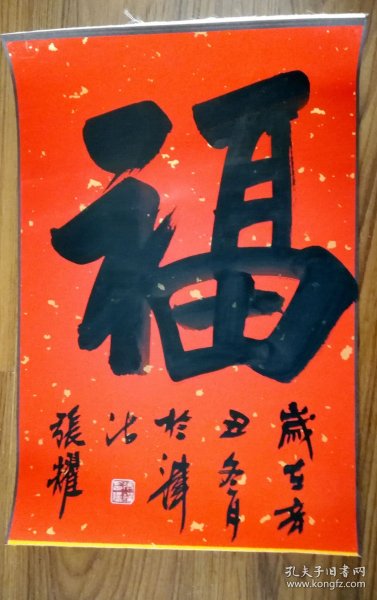 福
歲在辛
丑冬月
於津
沽
張耀
孔夫子旧书网
www.kongfz.com